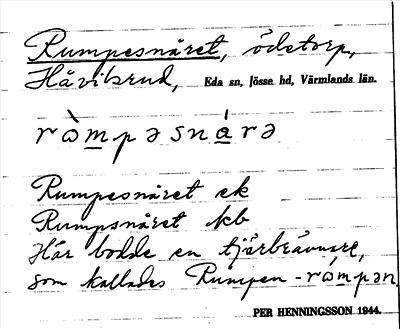 Rumpesnåret, ödetorp,
Håvilsrud, Eda sn, Jösse hd, Värmlands län.
ròmpəsnárə
Rumpesnåret ek
Rumpsnåret kb
Här bodde en tjärbrännare,
som kallades Rumpen - ròmpən
PER HENNINGSSON 1944.